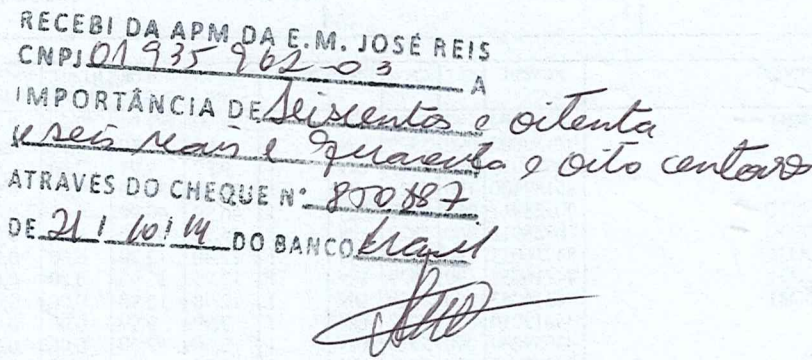 RECEBI DA APM DA E.M. JOSÉ REIS
CNPJ 01 935 962-03 A
IMPORTÂNCIA DE Seiscentos e oitenta
e seis reais e quarenta e oito centavos
ATRAVES DO CHEQUE Nº 850887
DE 21 / 10 / 14 DO BANCO Brasil